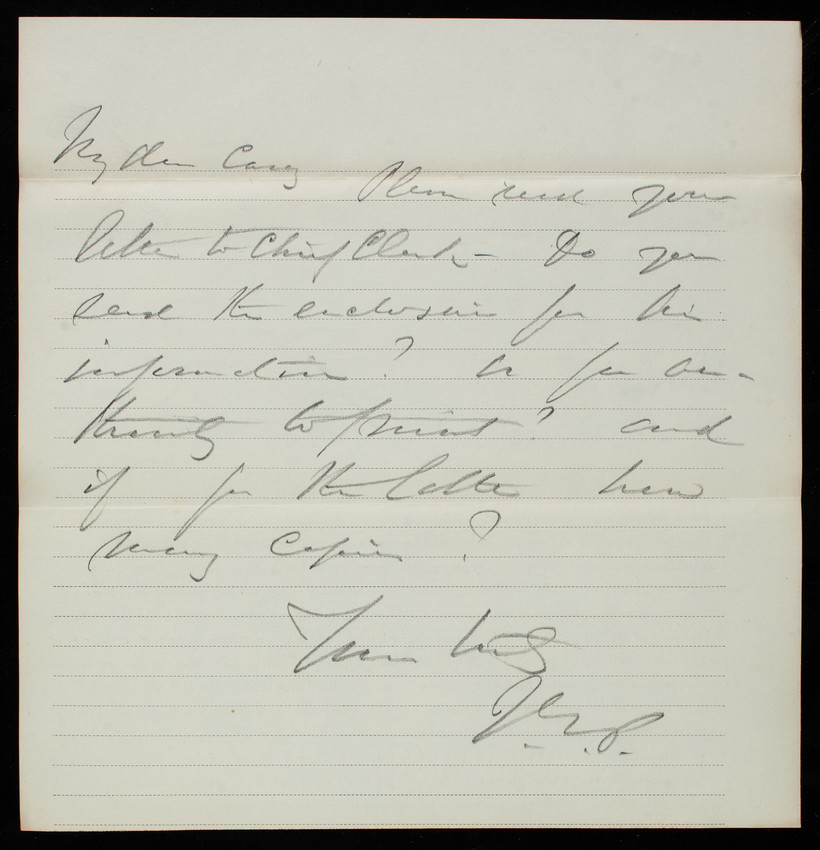 My dear Casey Please read your
letter to Chief Clerk - Do you
send the enclosure for his
information? or for au-
thority to print? and
if for the latter how
many copies?
Yours truly